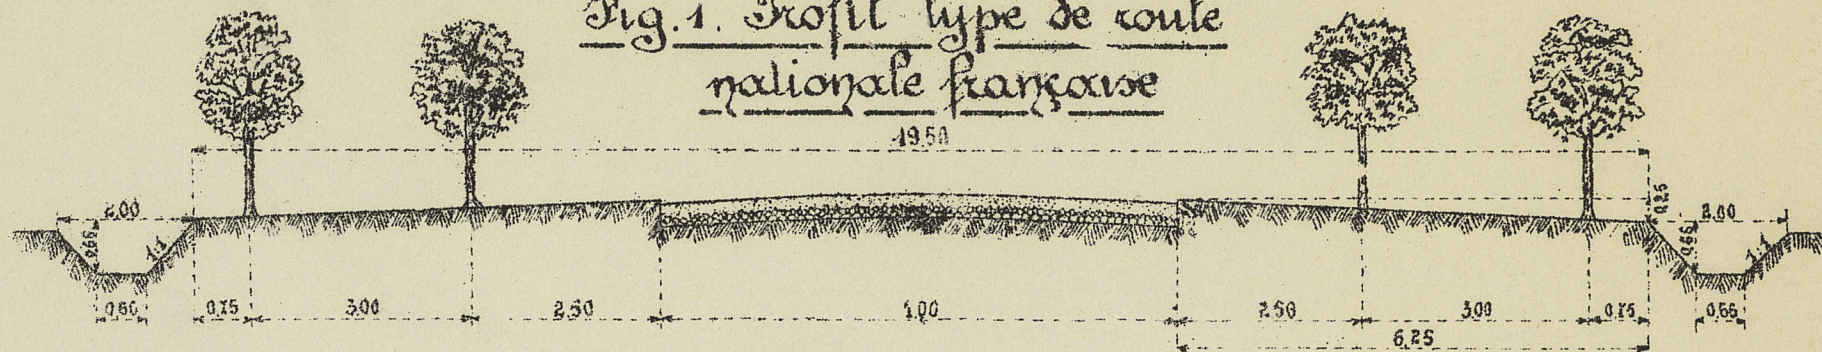 Fig. 1. Profil type de route
nationale française
19,50
2,00
0,25
2,00
0,66
1:1
0,66
1:1
0,66
0,75
3,00
2,50
7,00
2,50
3,00
0,75
0,66
6,25